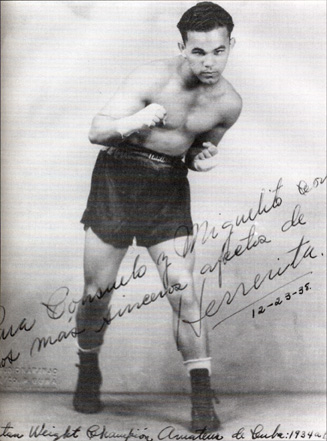 Para Consuelo y Miguelito con
los más sinceros afectos de
Herrerita.
12-23-35.
Weight Champion Amateur de Cuba: 1934